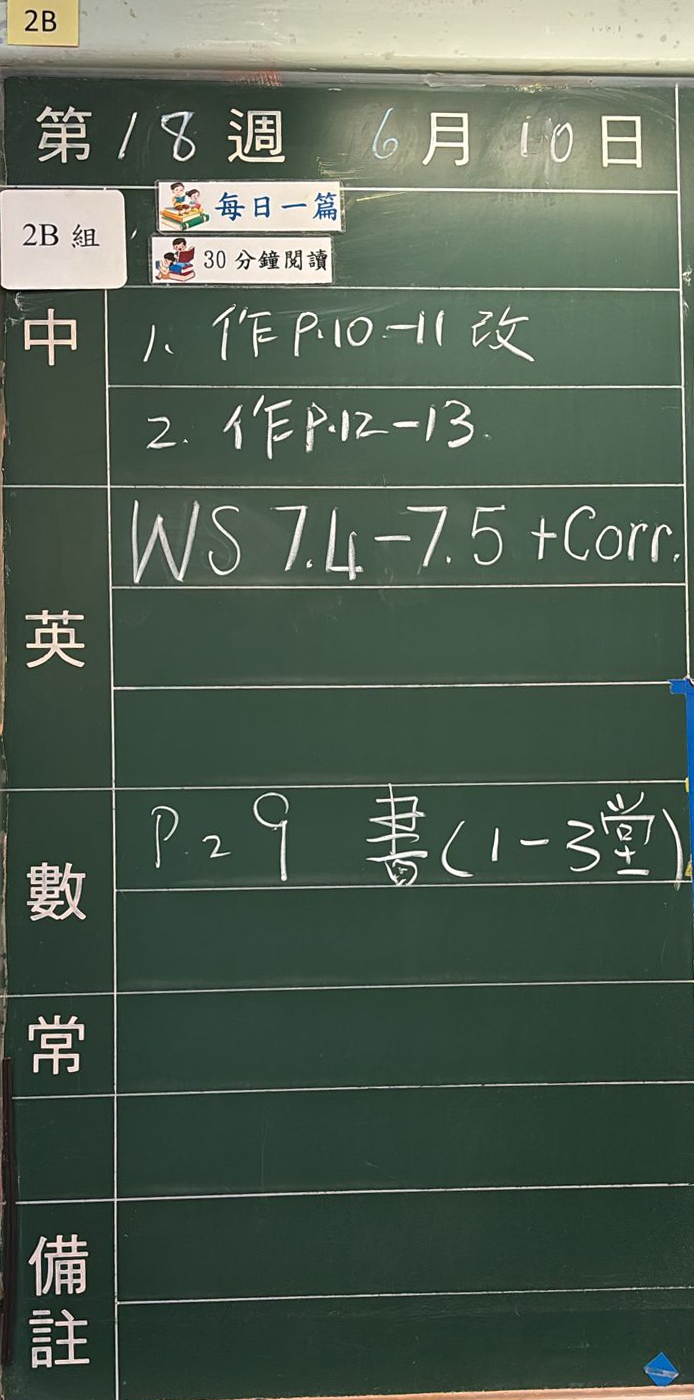 2B
第18週 6月10日
2B 組
每日一篇
30 分鐘閱讀
中
1. 作P.10-11 改
2. 作P.12-13.
英
WS 7.4-7.5 +Corr.
數
P.29 書(1-3堂)
常
備註